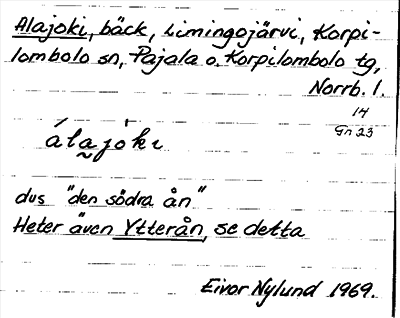 Alajoki, bäck, Limingojärvi, Korpi-
lombolo sn, Pajala o. Korpilombolo tg,
Norrb. l.
14
Gn 23
álajòkı
dvs "den södra ån"
Heter även Ytterån, se detta
Eivor Nylund 1969.